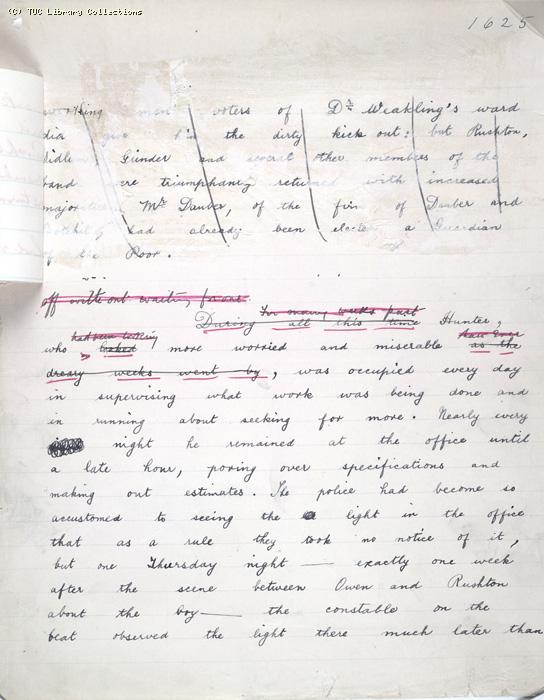 (C) TUC Library Collections
1625
working men voters of Dr Weakling's ward
did give him the dirty kick out: but Rushton,
Didlum, Grinder and several other members of the
band were triumphantly returned with increased
majorities. Mr Dauber, of the firm of Dauber and
Botchit, had already been elected a Guardian
of the Poor.
off without waiting for
For many weeks past
During all this time Hunter,
had been looking
who looked more worried and miserable as the
dreary weeks went by, was occupied every day
in supervising what work was being done and
in running about seeking for more. Nearly every
night he remained at the office until
a late hour, poring over specifications and
making out estimates. The police had become so
accustomed to seeing the light in the office
that as a rule they took no notice of it,
but one Thursday night — exactly one week
after the scene between Owen and Rushton
about the boy — the constable on the
beat observed the light there much later than